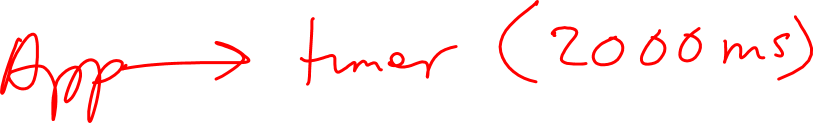 App → timer (2000ms)